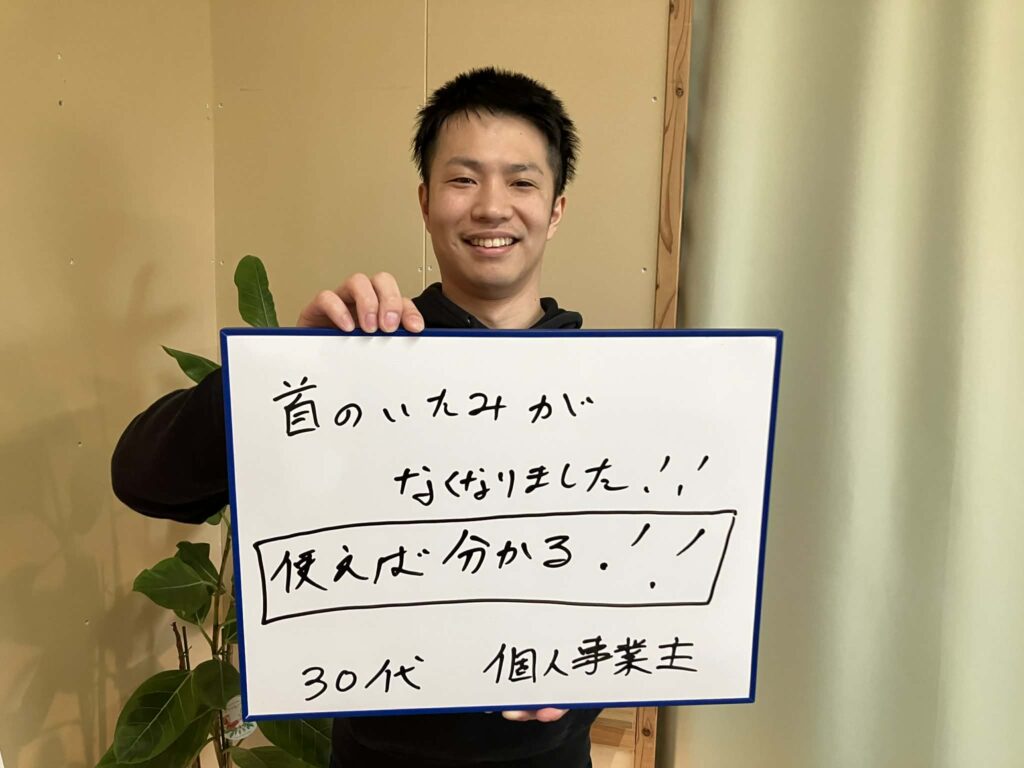 首のいたみが
なくなりました!!
使えば分かる!!
30代 個人事業主